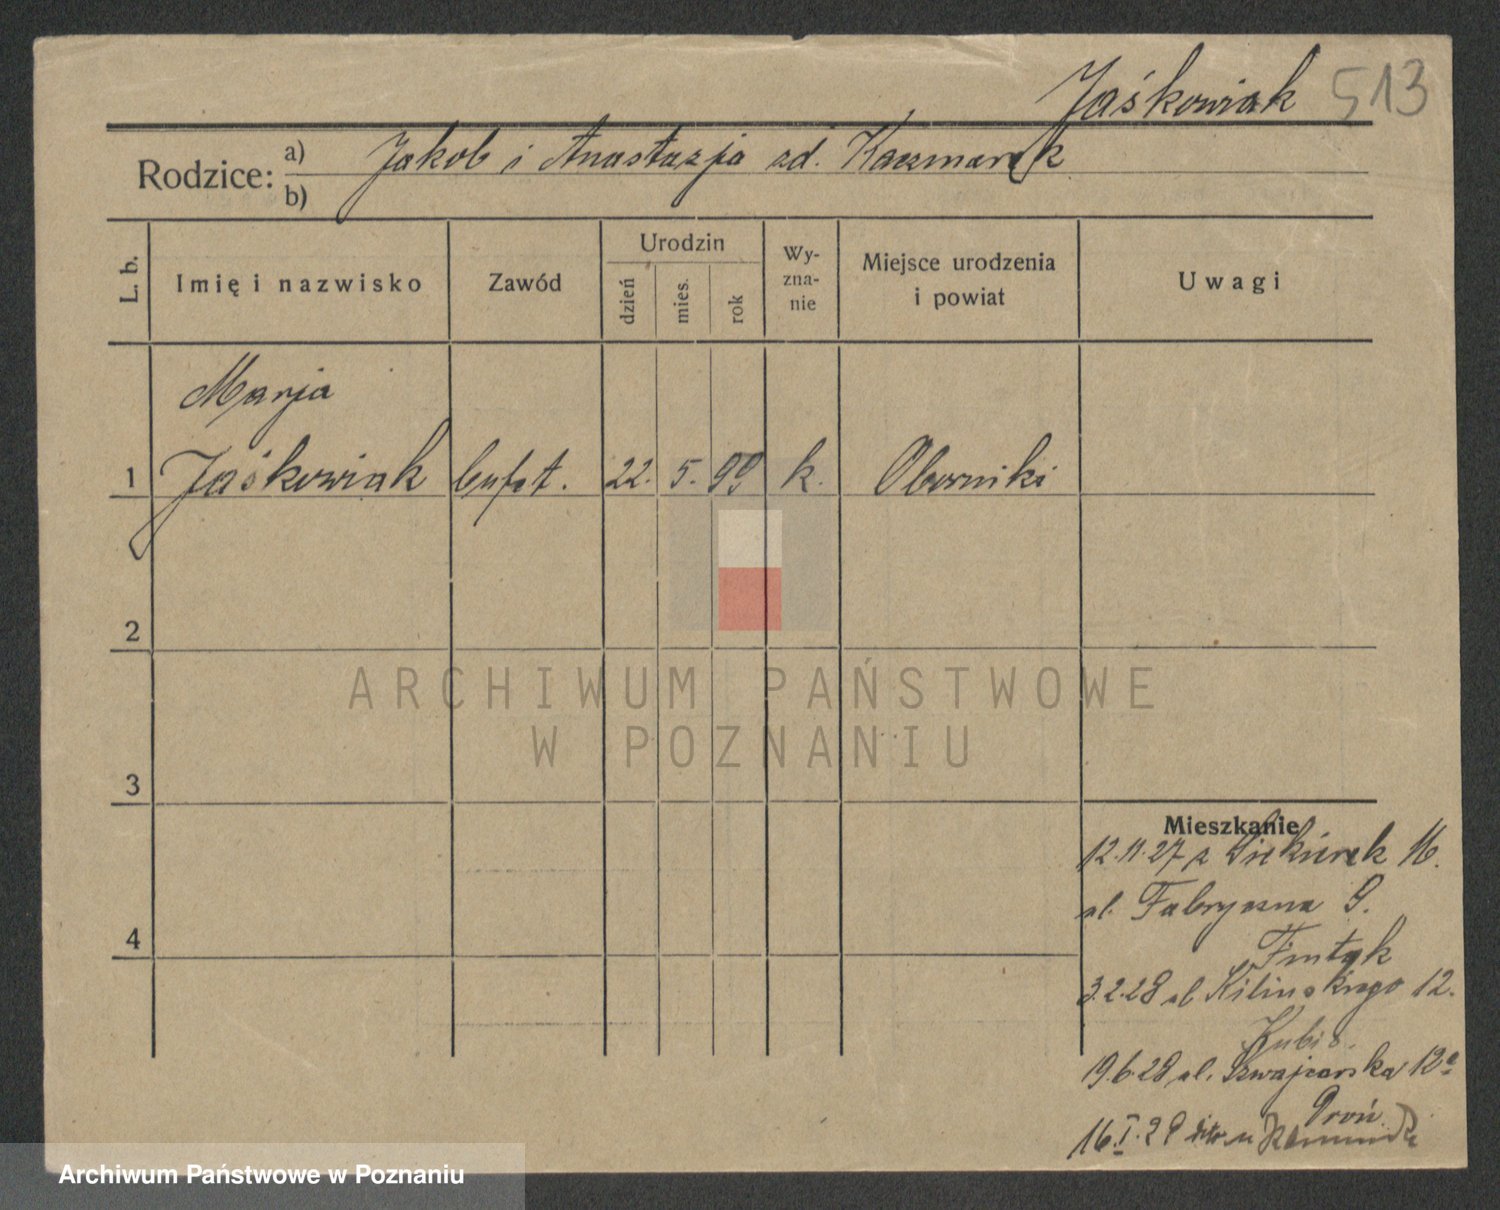 Jaśkowiak 513
Rodzice: a) Jakob i Anastazja zd. Kaczmarek
b)
L. b.
Imię i nazwisko
Zawód
Urodzin
dzień
mies.
rok
Wy-
zna-
nie
Miejsce urodzenia
i powiat
Uwagi
Marja
1 Jaśkowiak bufet. 22. 5. 99 k. Oborniki
2
ARCHIWUM PAŃSTWOWE
W POZNANIU
3
Mieszkanie
12.11.27 z Siekierek 16.
ul. Fabryczna 9.
4
3.2.28 ul Kilinskiego 12.
19.6.28 ul. Szwajcarska 12a
16.I.29
Archiwum Państwowe w Poznaniu